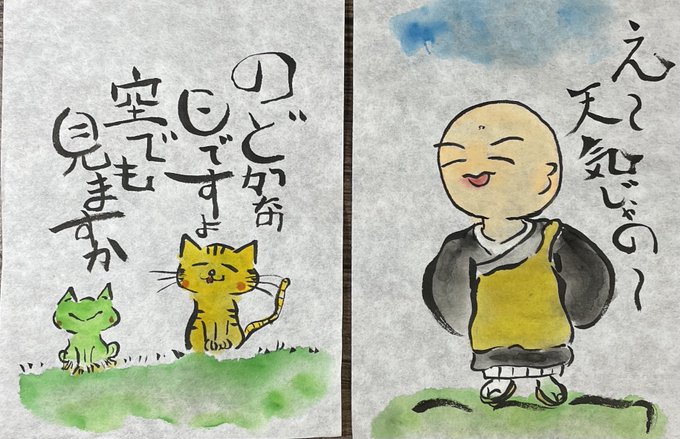 のどかな
日ですよ
空でも
見ますか
え〜
天気じゃの〜